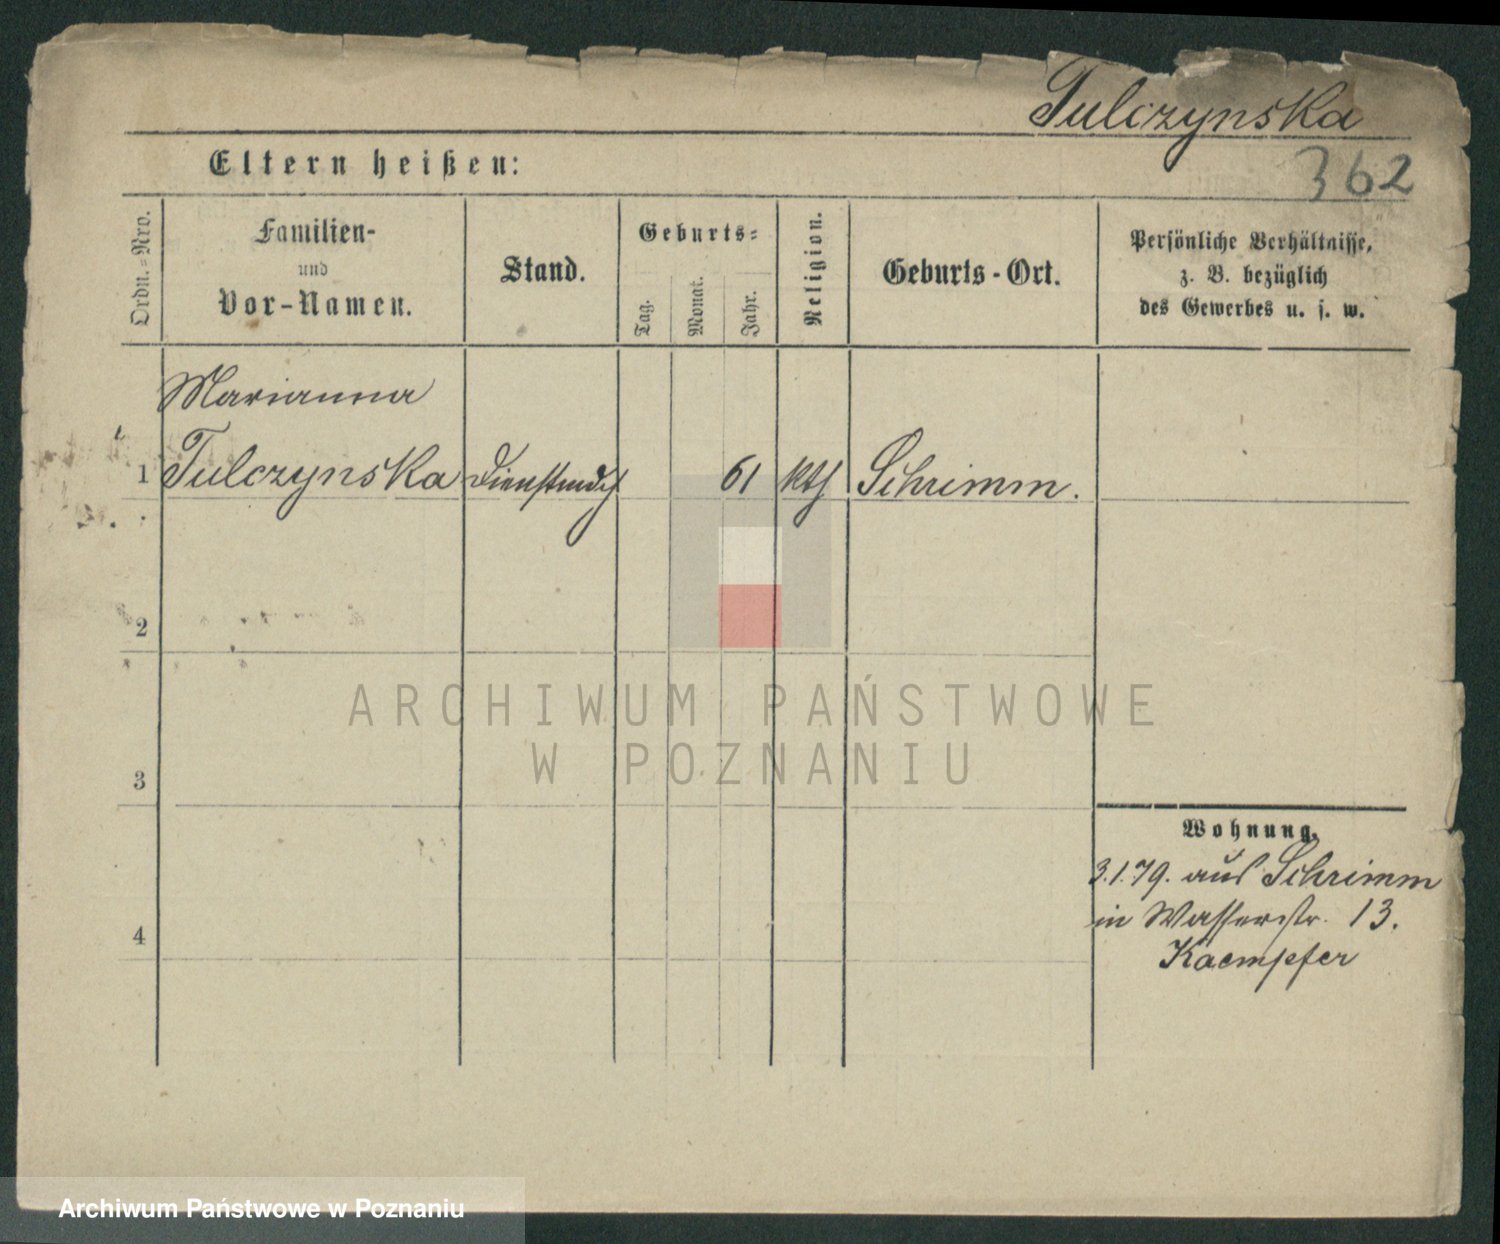 Tulczynska
362
Eltern heißen:
Ordn.=Nro.
Familien-
und
Vor-Namen.
Stand.
Geburts=
Tag.
Monat.
Jahr.
Religion.
Geburts-Ort.
Persönliche Verhältnisse,
z. B. bezüglich
des Gewerbes u. s. w.
Marianna
1 Tulczynska Dienstmdch 61 kth Schrimm.
2
ARCHIWUM PAŃSTWOWE
W POZNANIU
3
Wohnung.
3.1.79. aus Schrimm
in Wasserstr. 13.
Kaempfer
4
Archiwum Państwowe w Poznaniu